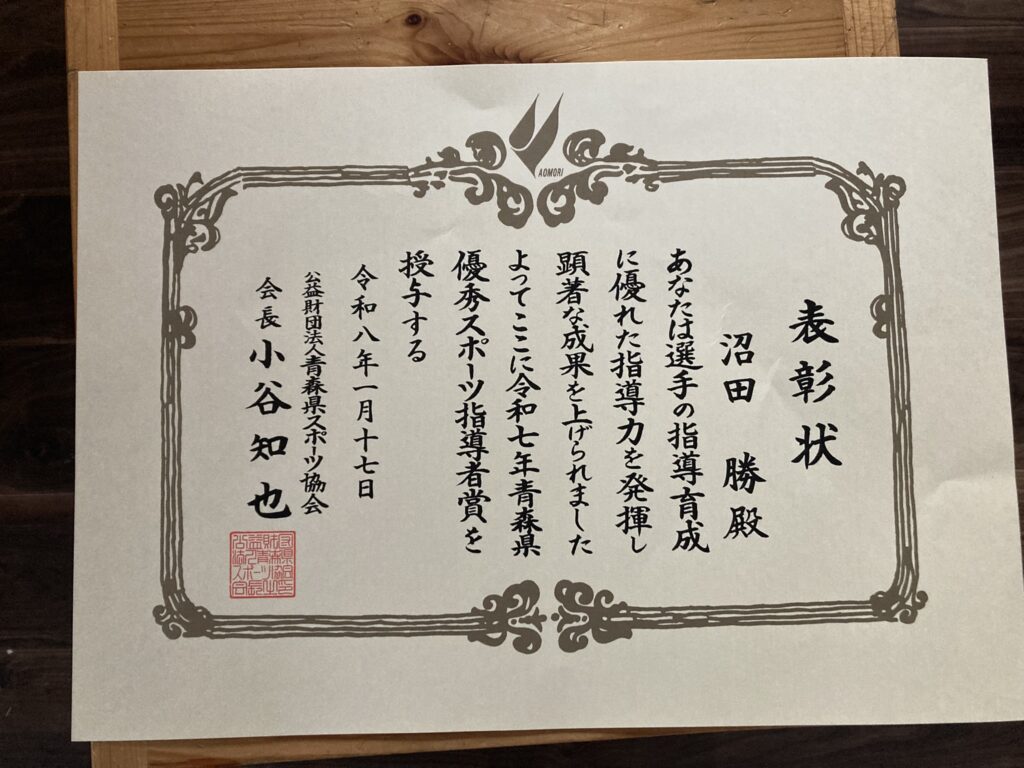 AOMORI
表彰状
沼田 勝 殿
あなたは選手の指導育成
に優れた指導力を発揮し
顕著な成果を上げられました
よってここに令和七年青森県
優秀スポーツ指導者賞を
授与する
令和八年一月十七日
公益財団法人青森県スポーツ協会
会長 小谷知也